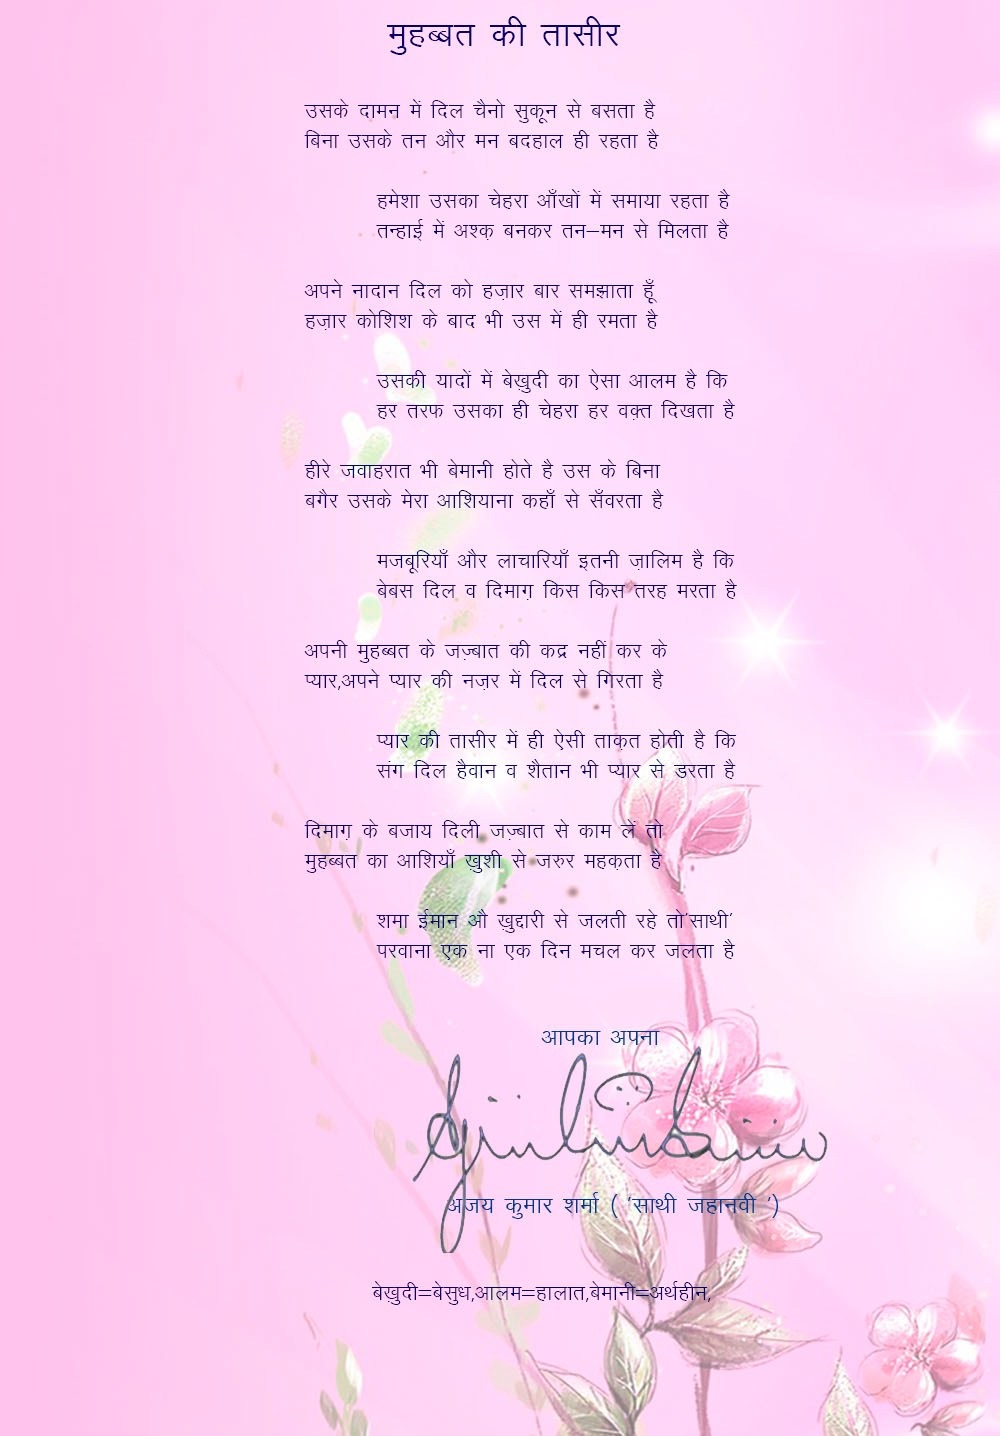 मुहब्बत की तासीर
उसके दामन में दिल चैनो सुकून से बसता है
बिना उसके तन और मन बदहाल ही रहता है
हमेशा उसका चेहरा आँखों में समाया रहता है
तन्हाई में अश्क़ बनकर तन–मन से मिलता है
अपने नादान दिल को हज़ार बार समझाता हूँ
हज़ार कोशिश के बाद भी उस में ही रमता है
उसकी यादों में बेख़ुदी का ऐसा आलम है कि
हर तरफ उसका ही चेहरा हर वक़्त दिखता है
हीरे जवाहरात भी बेमानी होते है उस के बिना
बगैर उसके मेरा आशियाना कहाँ से सँवरता है
मजबूरियाँ और लाचारियाँ इतनी ज़ालिम है कि
बेबस दिल व दिमाग़ किस किस तरह मरता है
अपनी मुहब्बत के जज़्बात की कद्र नहीं कर के
प्यार,अपने प्यार की नज़र में दिल से गिरता है
प्यार की तासीर में ही ऐसी ताक़त होती है कि
संग दिल हैवान व शैतान भी प्यार से डरता है
दिमाग़ के बजाय दिली जज़्बात से काम लें तो
मुहब्बत का आशियाँ ख़ुशी से जरुर महक़ता है
शमा ईमान औ ख़ुद्दारी से जलती रहे तो‘साथी’
परवाना एक ना एक दिन मचल कर जलता है
आपका अपना
अजय कुमार शर्मा ( ‘साथी जहानवी ’)
बेख़ुदी=बेसुध,आलम=हालात,बेमानी=अर्थहीन,